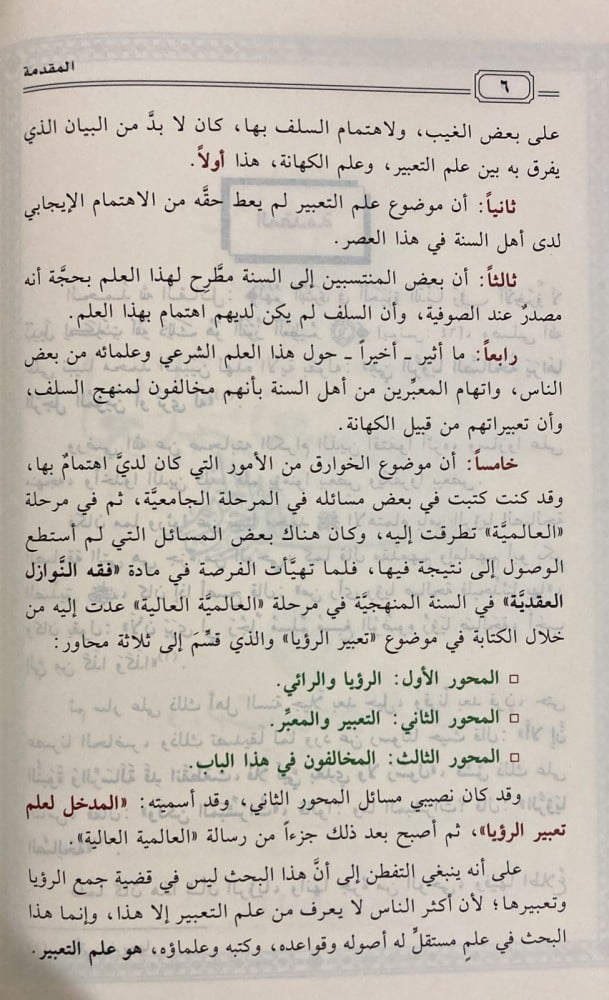 المقدمة
٦
على بعض الغيب، ولاهتمام السلف بها، كان لا بدَّ من البيان الذي
يفرق به بين علم التعبير، وعلم الكهانة، هذا أولاً.
ثانياً: أن موضوع علم التعبير لم يعط حقَّه من الاهتمام الإيجابي
لدى أهل السنة في هذا العصر.
ثالثاً: أن بعض المنتسبين إلى السنة مطَّرِح لهذا العلم بحجَّة أنه
مصدرٌ عند الصوفية، وأن السلف لم يكن لديهم اهتمام بهذا العلم.
رابعاً: ما أثير ـ أخيراً ـ حول هذا العلم الشرعي وعلمائه من بعض
الناس، واتهام المعبِّرين من أهل السنة بأنهم مخالفون لمنهج السلف،
وأن تعبيراتهم من قبيل الكهانة.
خامساً: أن موضوع الخوارق من الأمور التي كان لديَّ اهتمامٌ بها،
وقد كنت كتبت في بعض مسائله في المرحلة الجامعيَّة، ثم في مرحلة
«العالميَّة» تطرقت إليه، وكان هناك بعض المسائل التي لم أستطع
الوصول إلى نتيجة فيها، فلما تهيَّأت الفرصة في مادة «فقه النَّوازل
العقديَّة» في السنة المنهجيَّة في مرحلة «العالميَّة العالية» عدت إليه من
خلال الكتابة في موضوع «تعبير الرؤيا» والذي قسِّمَ إلى ثلاثة محاور:
□ المحور الأول: الرؤيا والرائي.
□ المحور الثاني: التعبير والمعبِّر.
□ المحور الثالث: المخالفون في هذا الباب.
وقد كان نصيبي مسائل المحور الثاني، وقد أسميته: «المدخل لعلم
تعبير الرؤيا»، ثم أصبح بعد ذلك جزءاً من رسالة «العالمية العالية».
على أنه ينبغي التفطن إلى أنَّ هذا البحث ليس في قضية جمع الرؤيا
وتعبيرها؛ لأن أكثر الناس لا يعرف من علم التعبير إلا هذا، وإنما هذا
البحث في علمٍ مستقلٍّ له أصوله وقواعده، وكتبه وعلماؤه، هو علم التعبير.